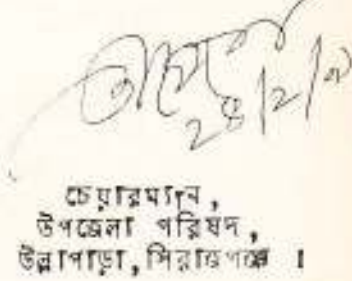 চেয়ারম্যান,
উপজেলা পরিষদ,
উল্লাপাড়া, সিরাজগঞ্জ ।